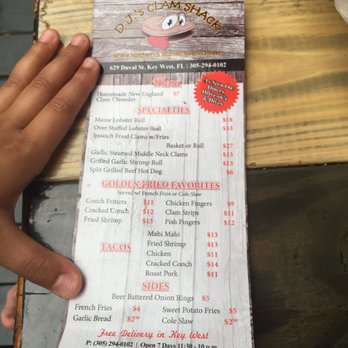 D.J.'s CLAM SHACK
629 Duval St. Key West, FL | 305-294-0102
As Seen On
Diners,
Drive-ins
& Dives
Menu
Homemade New England $7
Clam Chowder
SPECIALTIES
Maine Lobster Roll $18
Over Stuffed Lobster Roll $33
Ipswich Fried Clams w/Fries
Basket or Roll $27
Garlic Steamed Middle Neck Clams $13
Grilled Garlic Shrimp Roll $15
Split Grilled Beef Hot Dog $6
GOLDEN FRIED FAVORITES
Served w/ French Fries or Cole Slaw
Conch Fritters $11 Chicken Fingers $9
Cracked Conch $12 Clam Strips $11
Fried Shrimp $13 Fish Fingers $12
TACOS
Mahi Mahi $13
Fried Shrimp $13
Chicken $11
Cracked Conch $14
Roast Pork $11
SIDES
Beer Battered Onion Rings $5
French Fries $4 Sweet Potato Fries $5
Garlic Bread $2 Cole Slaw $2
Free Delivery in Key West
P: (305) 294-0102 | Open 7 Days 11:30 - 10